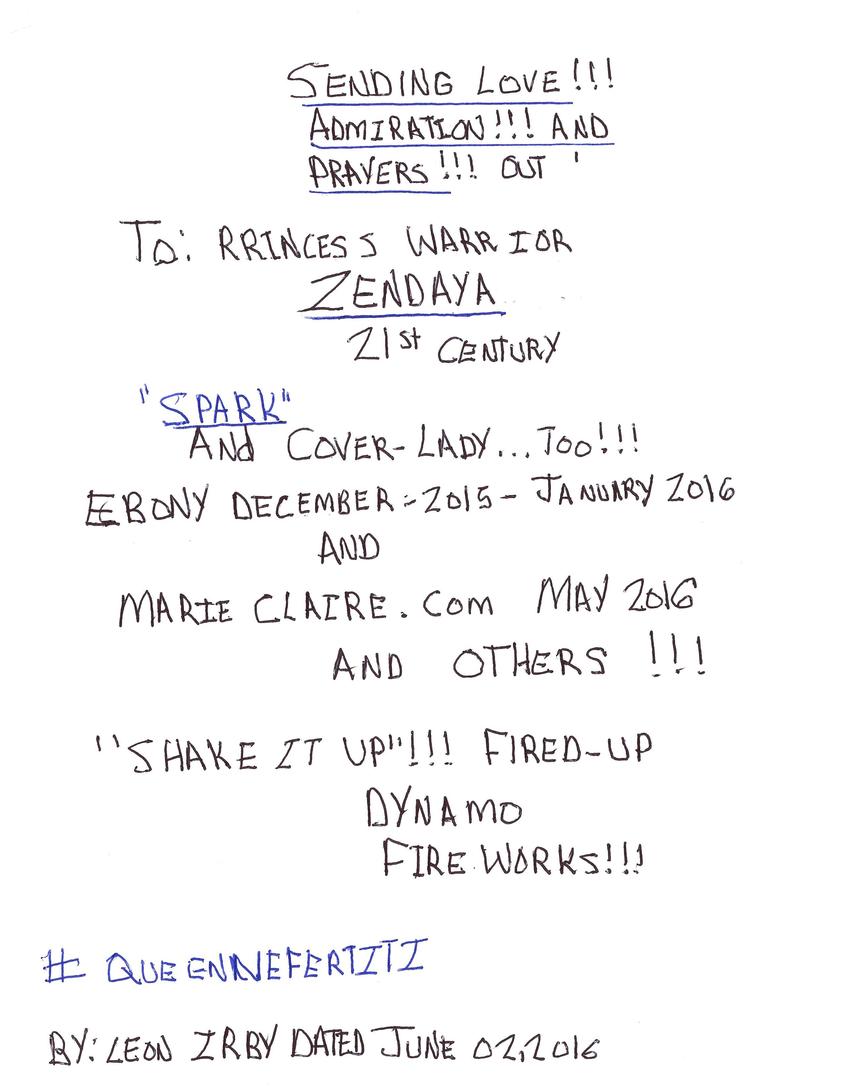 SENDING LOVE!!!
ADMIRATION!!! AND
PRAYERS!!! OUT '
TO: RRINCESS WARRIOR
ZENDAYA
21st CENTURY
"SPARK"
AND COVER-LADY...TOO!!!
EBONY DECEMBER:-2015-JANUARY 2016
AND
MARIE CLAIRE.COM MAY 2016
AND OTHERS !!!
"SHAKE IT UP"!!! FIRED-UP
DYNAMO
FIREWORKS!!!
# QUEENNEFERTITI
BY: LEON IRBY DATED JUNE 02,2016